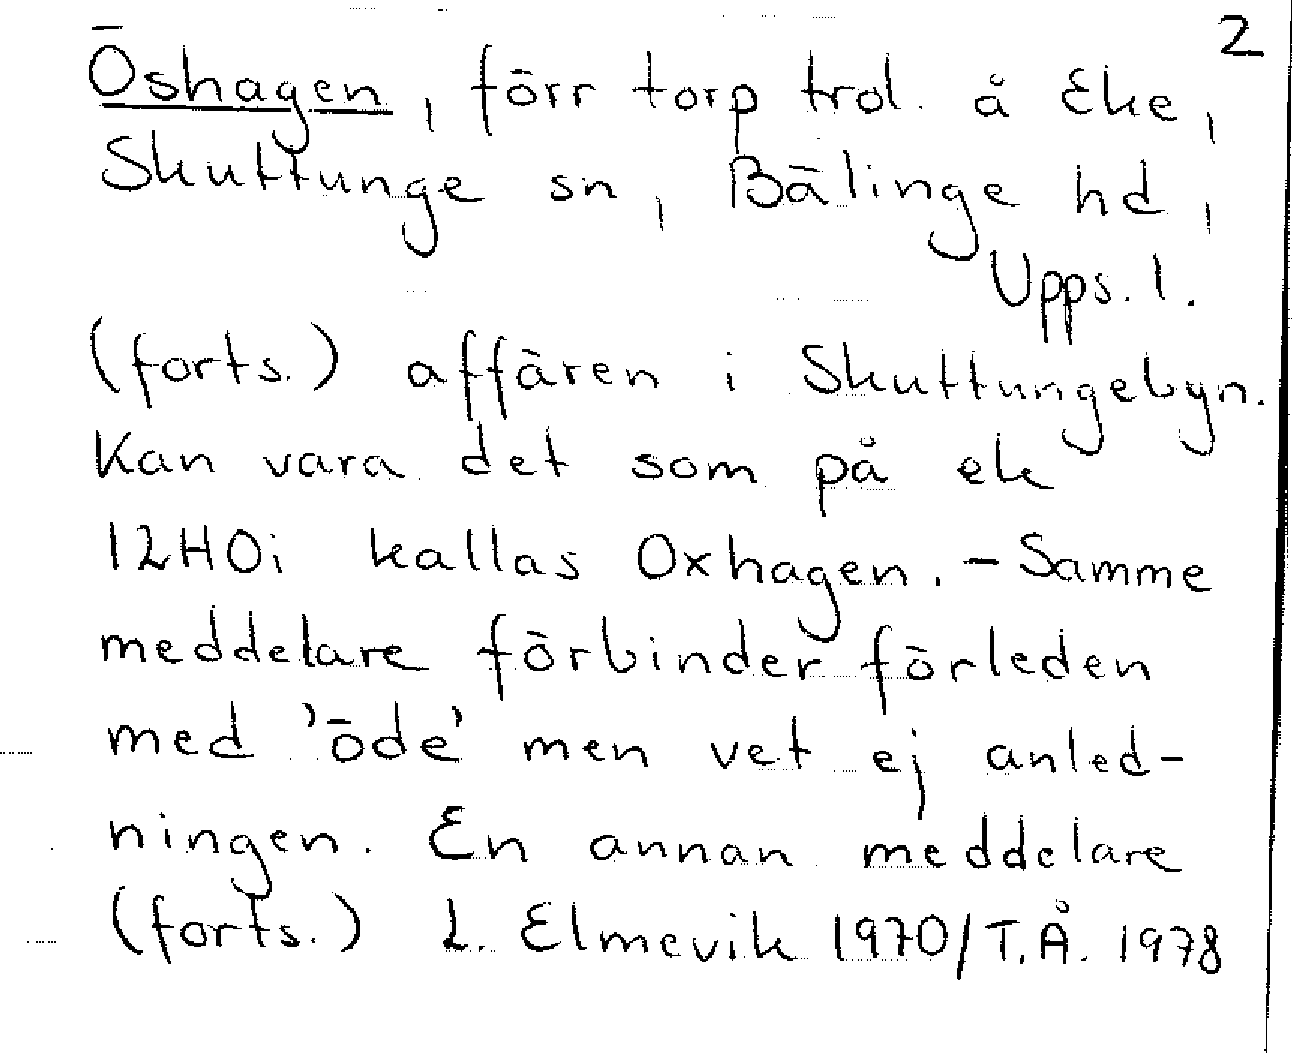 2
Öshagen, förr torp trol. å Eke,
Skuttunge sn, Bälinge hd,
Upps. l.
(forts.) affären i Skuttungebyn.
Kan vara det som på ek
12H0i kallas Oxhagen. - Samme
meddelare förbinder förleden
med 'öde' men vet ej anled-
ningen. En annan meddelare
(forts.) L. Elmevik 1970/T.Å. 1978